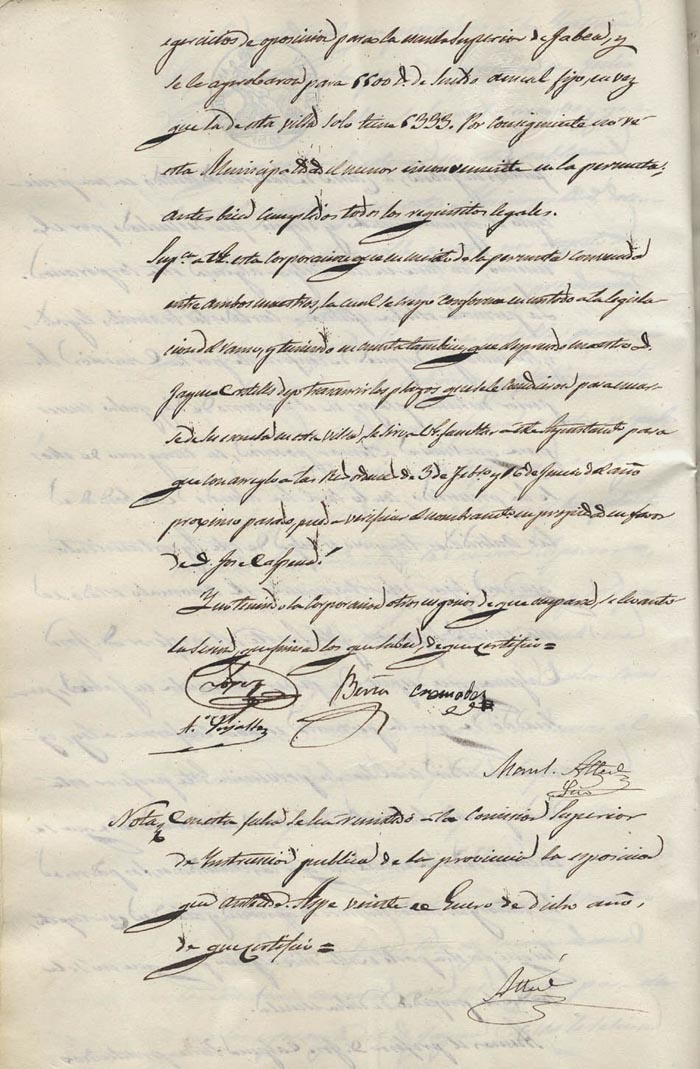 egercicios de oposicion para la escuela superior de Jabea, y
se le aprobaron para 5500 r.s de sueldo anual fijo, en vez
que la de esta villa solo tiene 5333. Por consiguiente no vé
esta Municipalidad el menor inconveniente en la permuta;
antes bien cumplidos todos los requisitos legales.
Sup.ca a V. esta Corporacion que en mérito de la permuta convenida
entre ambos maestros, la cual se hizo conforme en un todo a la legisla
cion del ramo, y teniendo en cuenta tambien, que el espresado maestro D.
Jayme dejo transcurrir los plazos que se le concedieron para encar-
se de su escuela en esta villa, se sirva V. facultar a este Ayuntam.to para
que con arreglo a las R.s ordenes de 3 de Feb.o y 16 de del año
proximo pasado, pueda verificar el nombram.to en propiedad en favor
de D. Jose
Y no teniendo la Corporacion otros negocios de que ocuparse, se levantó
la Sesion, que firman los que saben, de que certifico =
Lopez Berná Cremades
A.o
Man.l Alted
Srio
Nota, Con esta fecha se ha remitido a la Comision Superior
de Instruccion publica de la provincia la esposicion
que antecede. Aspe veinte de Enero de dicho año,
de que certifico =
Alted